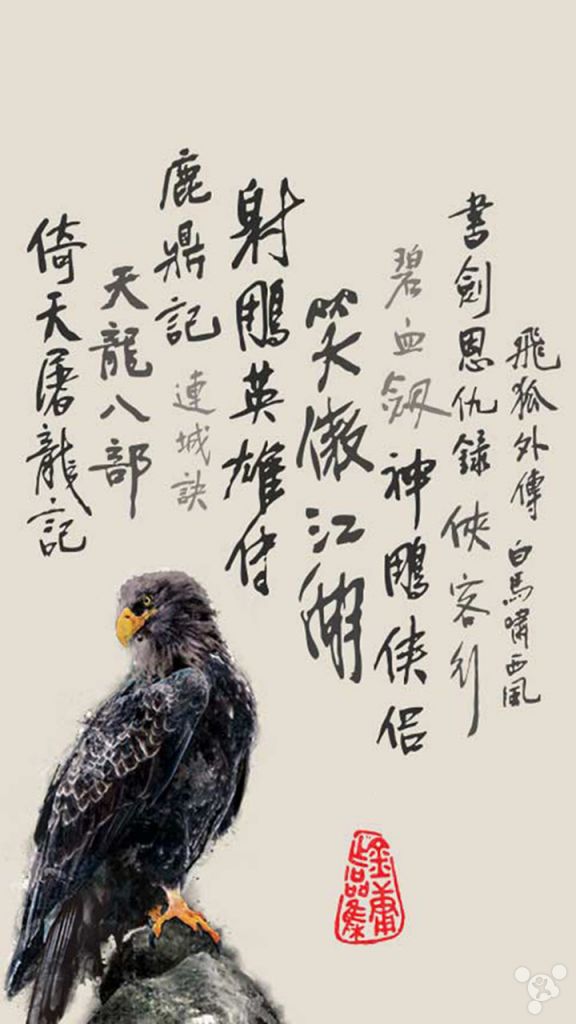 飛狐外傳
白馬嘯西風
書劍恩仇錄
俠客行
碧血劍
神鵰俠侶
笑傲江湖
射鵰英雄傳
鹿鼎記
連城訣
天龍八部
倚天屠龍記
金庸
作品集